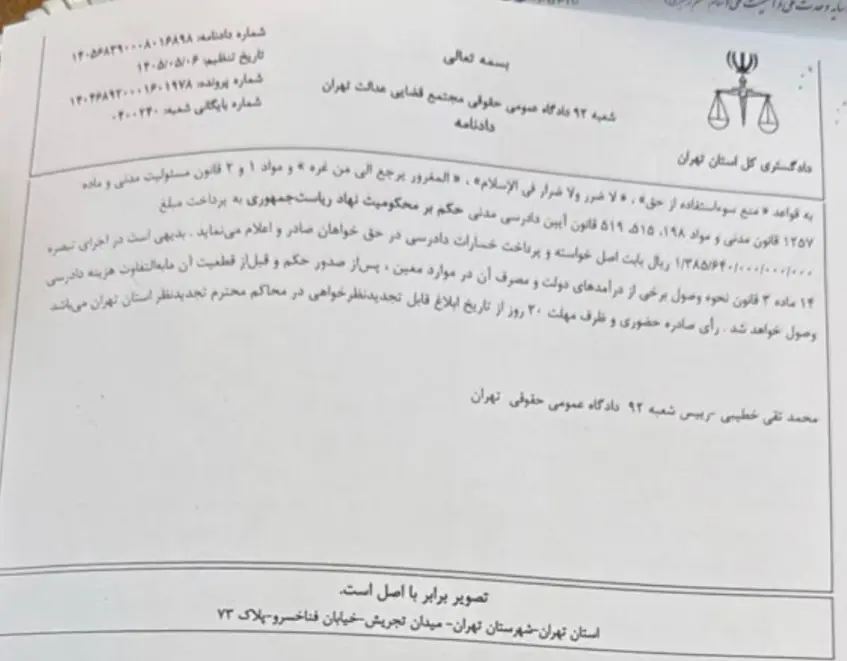 سایه وحدت ملی و امنیت ملی
بسمه تعالی
شعبه ۹۲ دادگاه عمومی حقوقی مجتمع قضایی عدالت تهران
دادنامه
شماره دادنامه: ۱۴۰۵۶۸۳۹۰۰۰۸۰۱۶۸۹۸
تاریخ تنظیم: ۱۴۰۵/۰۵/۰۶
شماره پرونده: ۱۴۰۴۶۸۹۲۰۰۰۱۶۰۱۹۷۸
شماره بایگانی شعبه: ۰۴۰۰۲۴۰
دادگستری کل استان تهران
به قواعد « منع سوءاستفاده از حق» ، « لا ضرر ولا ضرار فی الإسلام» ، « المغرور یرجع الی من غره » و مواد ۱ و ۲ قانون مسئولیت مدنی و ماده
۱۲۵۷ قانون مدنی و مواد ۱۹۸، ۵۱۵، ۵۱۹ قانون آیین دادرسی مدنی حکم بر محکومیت نهاد ریاست‌جمهوری به پرداخت مبلغ
۱/۳۸۵/۶۴۰/۰۰۰/۰۰۰/۰۰۰ ریال بابت اصل خواسته و پرداخت خسارات دادرسی در حق خواهان صادر و اعلام می‌نماید . بدیهی است در اجرای تبصره
۱۴ ماده ۳ قانون نحوه وصول برخی از درآمدهای دولت و مصرف آن در موارد معین ، پس‌از صدور حکم و قبل‌از قطعیت آن مابه‌التفاوت هزینه دادرسی
وصول خواهد شد . رأی صادره حضوری و ظرف مهلت ۲۰ روز از تاریخ ابلاغ قابل تجدیدنظرخواهی در محاکم محترم تجدیدنظر استان تهران می‌باشد
محمد تقی خطیبی -رییس شعبه ۹۲ دادگاه عمومی حقوقی تهران
تصویر برابر با اصل است.
استان تهران-شهرستان تهران- میدان تجریش-خیابان فناخسرو-پلاک ۷۳